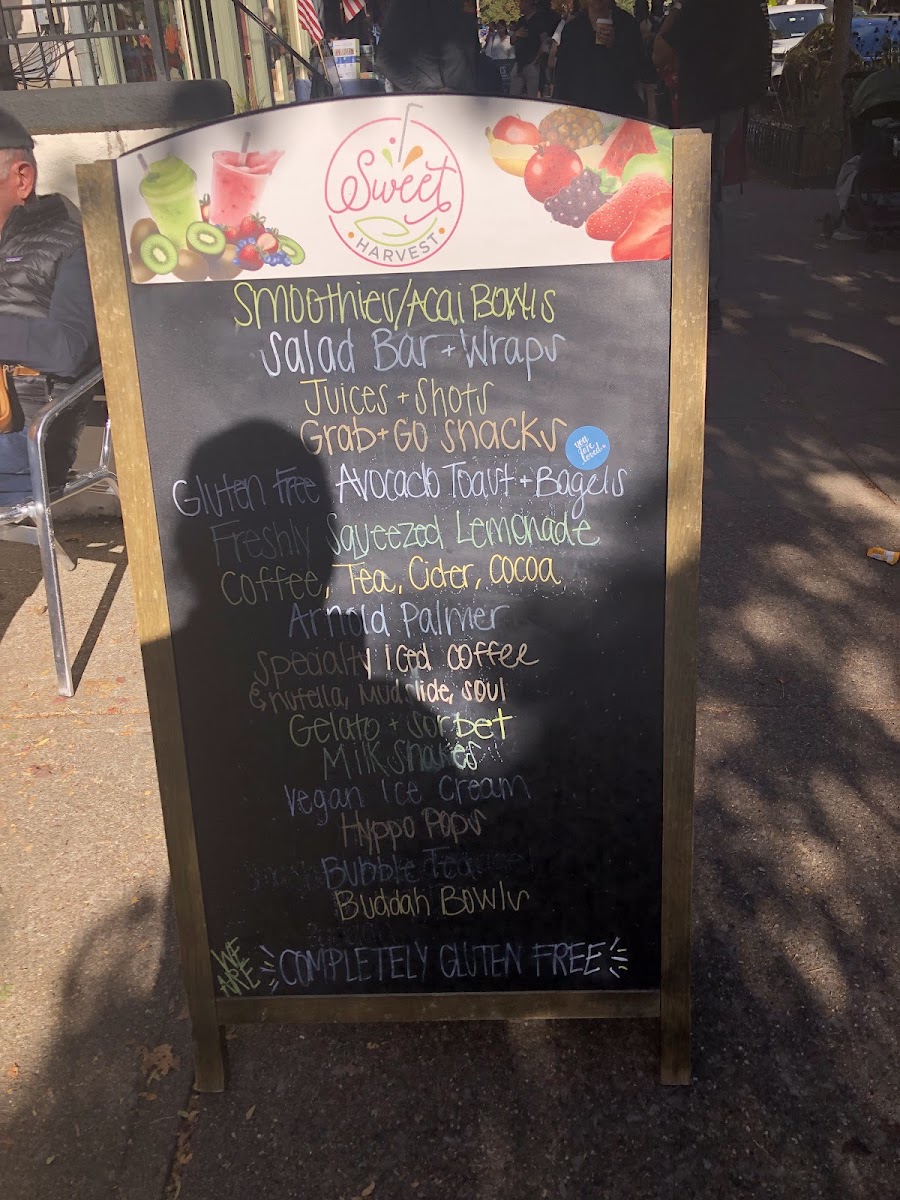 Sweet
HARVEST
Smoothies/Acai Bowls
Salad Bar + Wraps
Juices + Shots
Grab + Go Snacks
you are loved.
Gluten Free Avocado Toast + Bagels
Freshly Squeezed Lemonade
Coffee, Tea, Cider, Cocoa
Arnold Palmer
Specialty Iced Coffee
Nutella, Mudslide, Soul
Gelato + Sorbet
Milkshakes
Vegan Ice Cream
Hyppo Pops
Bubble Tea
Buddah Bowls
WE ARE
COMPLETELY GLUTEN FREE